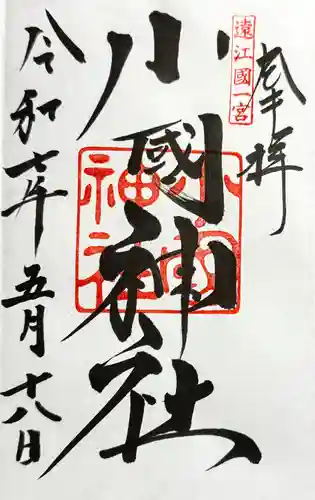 奉拝
遠江國一宮
小國神社
令和七年五月十八日